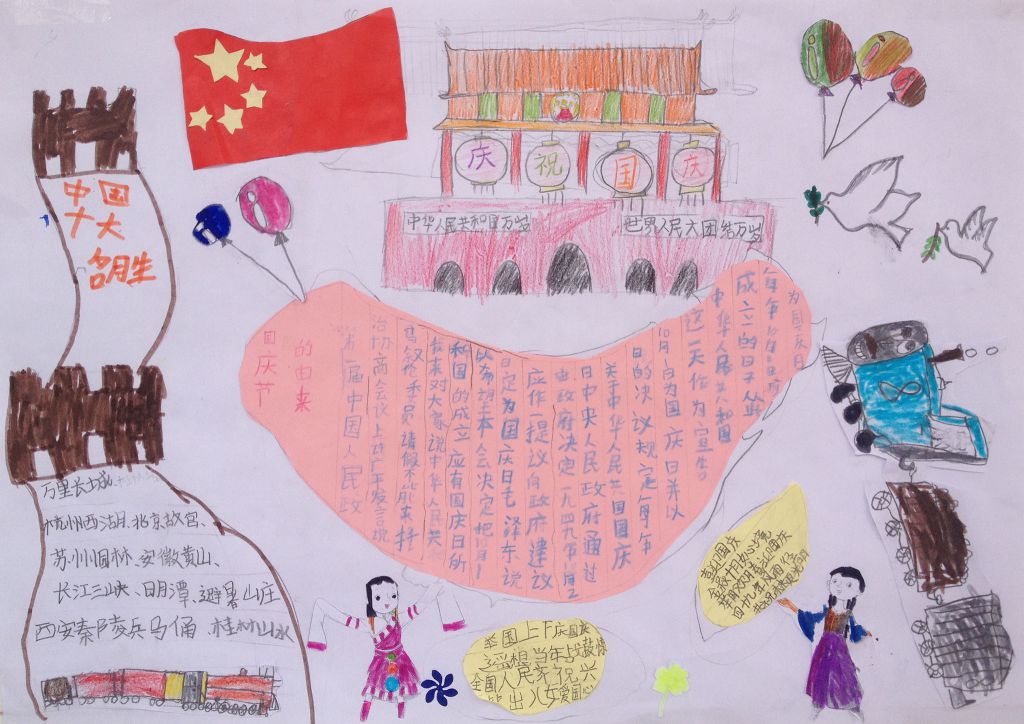 庆祝国庆
中华人民共和国万岁
世界人民大团结万岁
中国
十大
名胜
万里长城、
杭州西湖、北京故宫、
苏州园林、安徽黄山、
长江三峡、日月潭、避暑山庄
西安秦陵兵马俑、桂林山水
国庆节
的由来
第一届中国人民政
治协商会议上许广平发言说
马叙伦委员请假不能来托
我来对大家说中华人民共
和国的成立应有国庆日所
以希望本会决定把10月1
日定为国庆日毛泽东说
应作一提议向政府建议
由政府决定一九四九年10月2
日中央人民政府通过
关于中华人民共和国国庆
日的决议规定每年
10月1日为国庆日并以
这一天作为宣告
中华人民共和国
成立的日子从
为国庆日
举国上下庆国庆
遥想当年战鼓惊
全国人民齐祝兴
出儿女爱国心
喜迎国庆